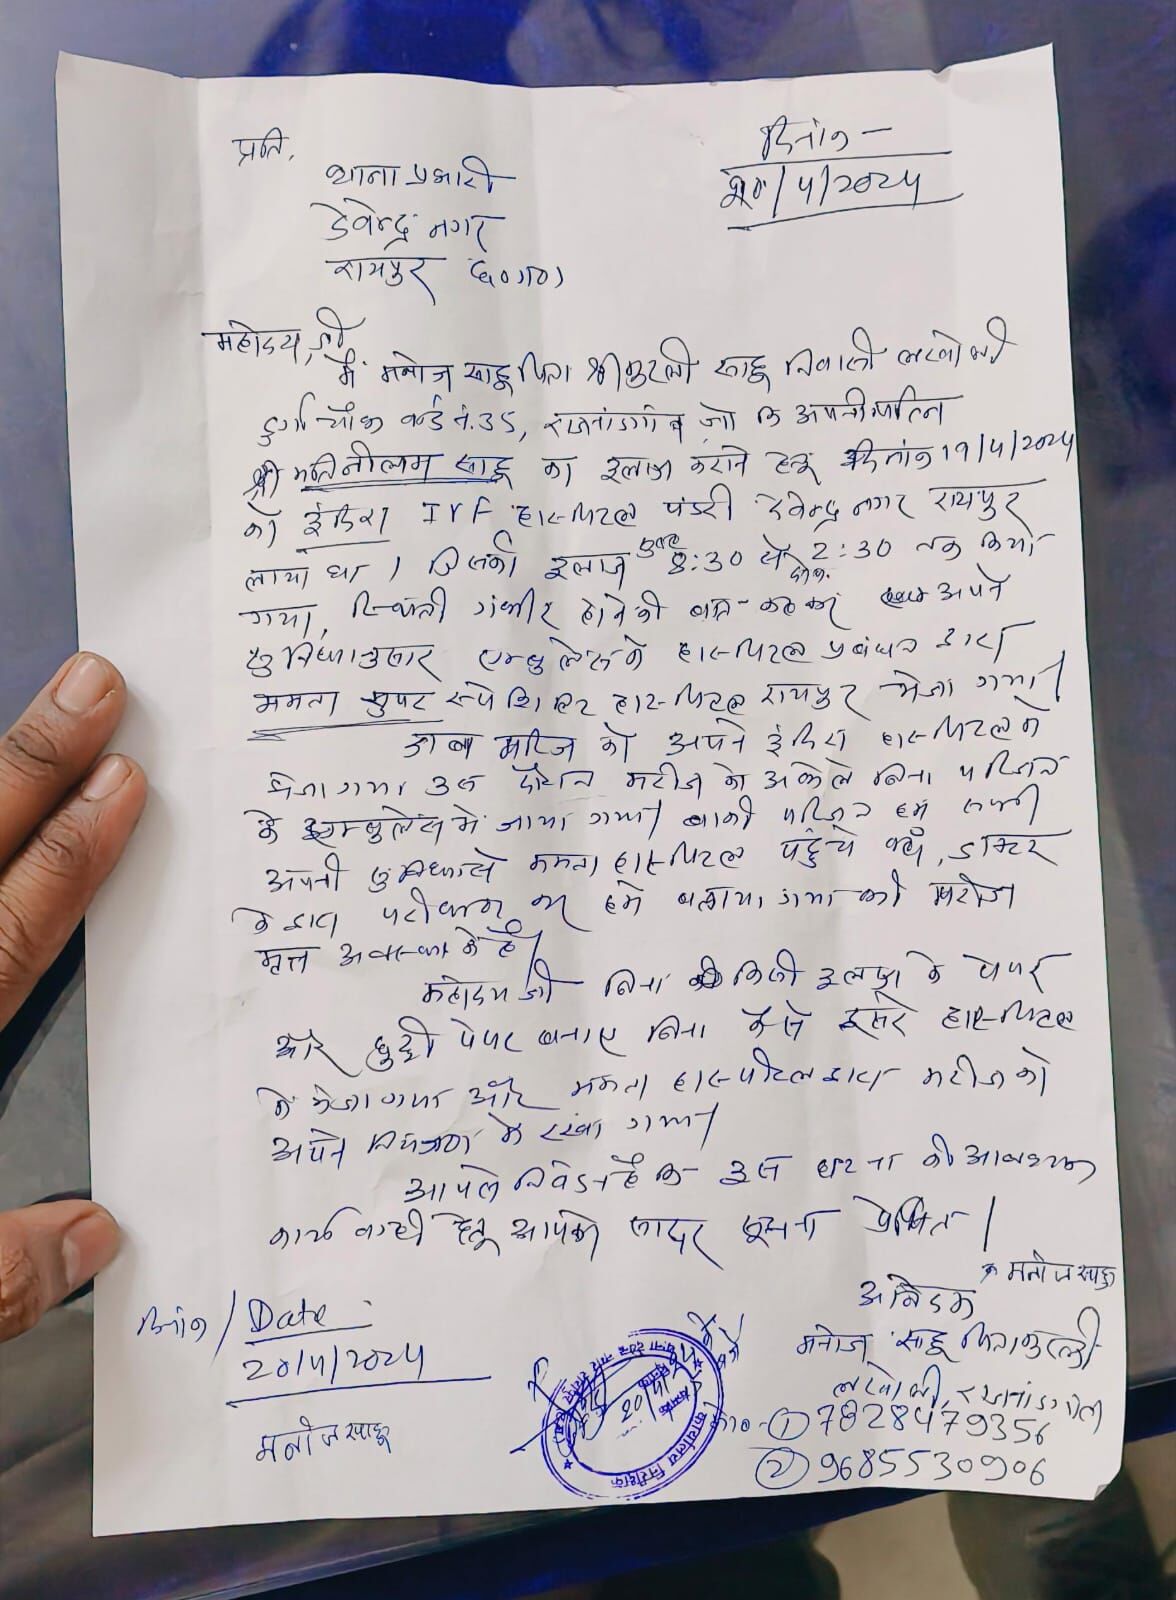 दिनांक -
20/4/2024
प्रति,
थाना प्रभारी
देवेन्द्र नगर
रायपुर छ०ग०
महोदय जी,
मैं मनोज साहू पिता श्री मुरली साहू निवासी लखोली
दुर्गा चौक वार्ड नं. 35, राजनांदगांव जो कि अपनी पत्नि
श्रीमति नीलम साहू का इलाज कराने हेतू दिनांक 19/4/2024
को इंदिरा IVF हास्पिटल पंडरी देवेन्द्र नगर रायपुर
लाया था। जिसकी इलाज सुबह 8:30 से 2:30 तक किया
गया, स्थिती गंभीर होने की बात कहकर अपने
सुविधानुसार एम्बुलेंस के हास्पिटल प्रबंधन द्वारा
ममता सुपर स्पेशिलिट हास्पिटल रायपुर भेजा गया।
जब मरिज को अपने इंदिरा हास्पिटल से
भेजा गया उस दौरान मरीज को अकेले बिना परिजन
के एम्बुलेंस में जाया गया। बाकी परिजन हम सभी
अपनी सुविधा से ममता हास्पिटल पहुंचे वहाँ, डाक्टर
के द्वारा परीक्षण कर हमें बताया गया की मरीज
मृत अवस्था में है।
महोदय जी बिना किसी इलाज के पेपर
और छुट्टी पेपर बनाए बिना कैसे दूसरे हास्पिटल
में भेजा गया और ममता हास्पीटल द्वारा मरीज को
अपने नियंत्रण में रखा गया।
आपसे निवेदन है कि इस घटना की आवश्यक
कार्यवाही हेतू आपको सादर सूचना प्रेषित।
मनोज साहू
आवेदक
मनोज साहू पिता मुरली
लखोली, राजनांदगांव
मो० - ① 7828479356
② 9685530906
दिनांक / Date
20/4/2024
मनोज साहू
कार्यालय निरीक्षक
20/4